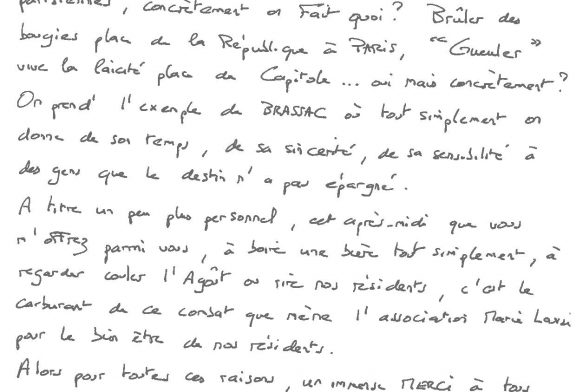 parisiennes, concrètement on Fait quoi? Brûler des
bougies place de la République à PARIS, "Gueuler"
vive la laïcité place du Capitole... oui mais concrètement?
On prend l'exemple de BRASSAC où tout simplement on
donne de son temps, de sa sincérité, de sa sensibilité à
des gens que le destin n'a pas épargné.
A titre un peu plus personnel, cet après-midi que vous
m'offrez parmi vous, à boire une bière tout simplement, à
regarder couler l'Agoût ou rire nos résidents, c'est le
carburant de ce combat que mène l'association Marie Louise
pour le bien être de nos résidents.
Alors pour toutes ces raisons, un immense MERCI à tous